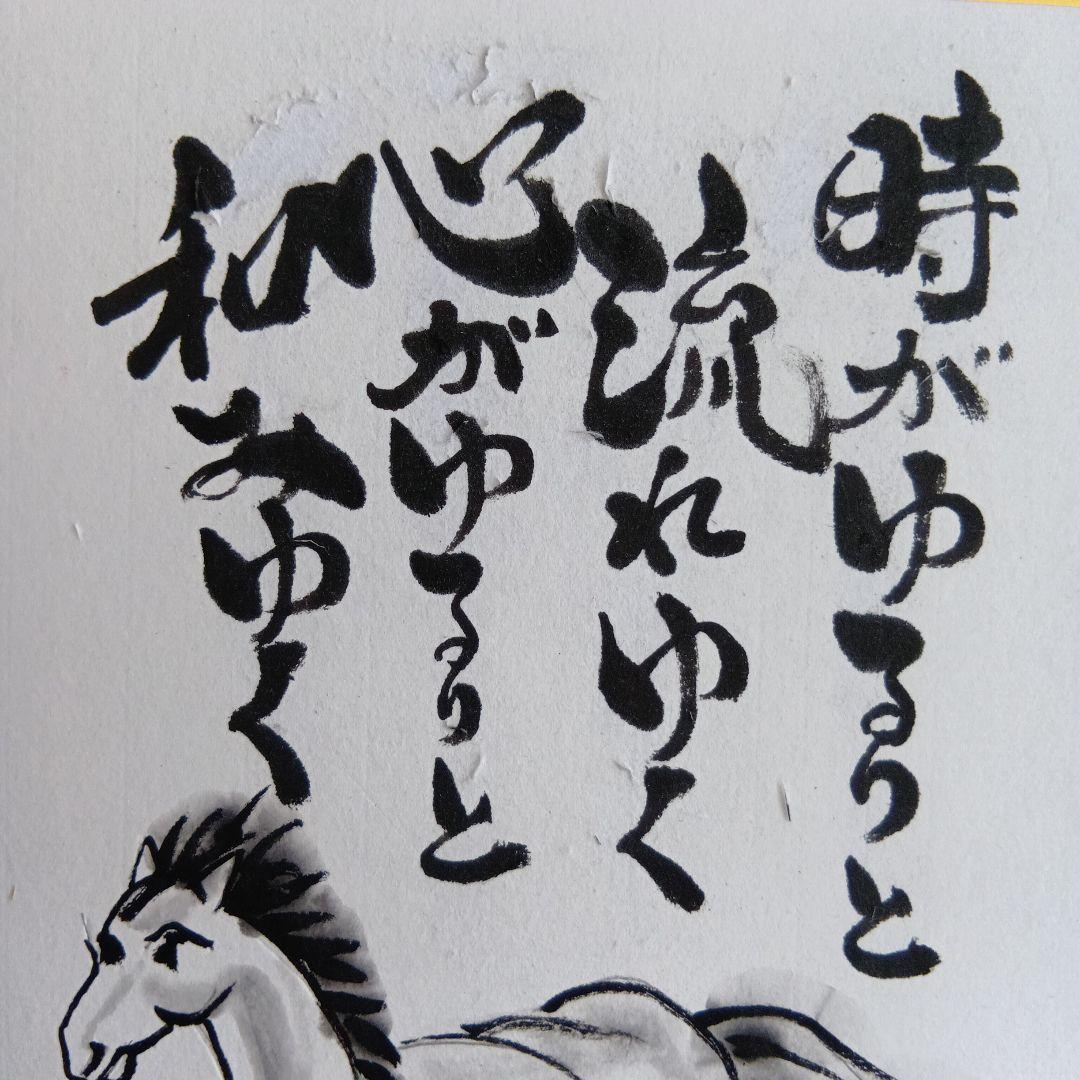 時がゆるりと
流れゆく
心がゆるりと
和みゆく